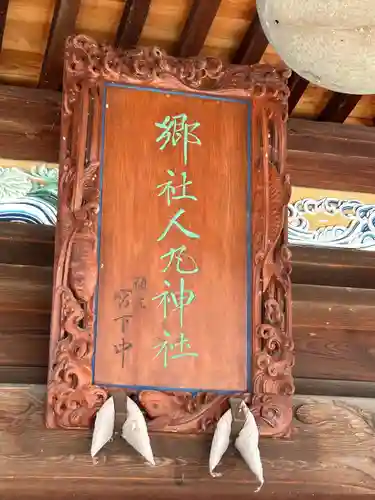 郷社人丸神社
宮下中